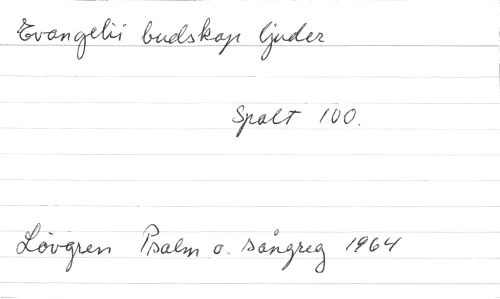 Evangelii budskap ljuder
Spalt 100.
Lövgren Psalm o. sångreg 1964